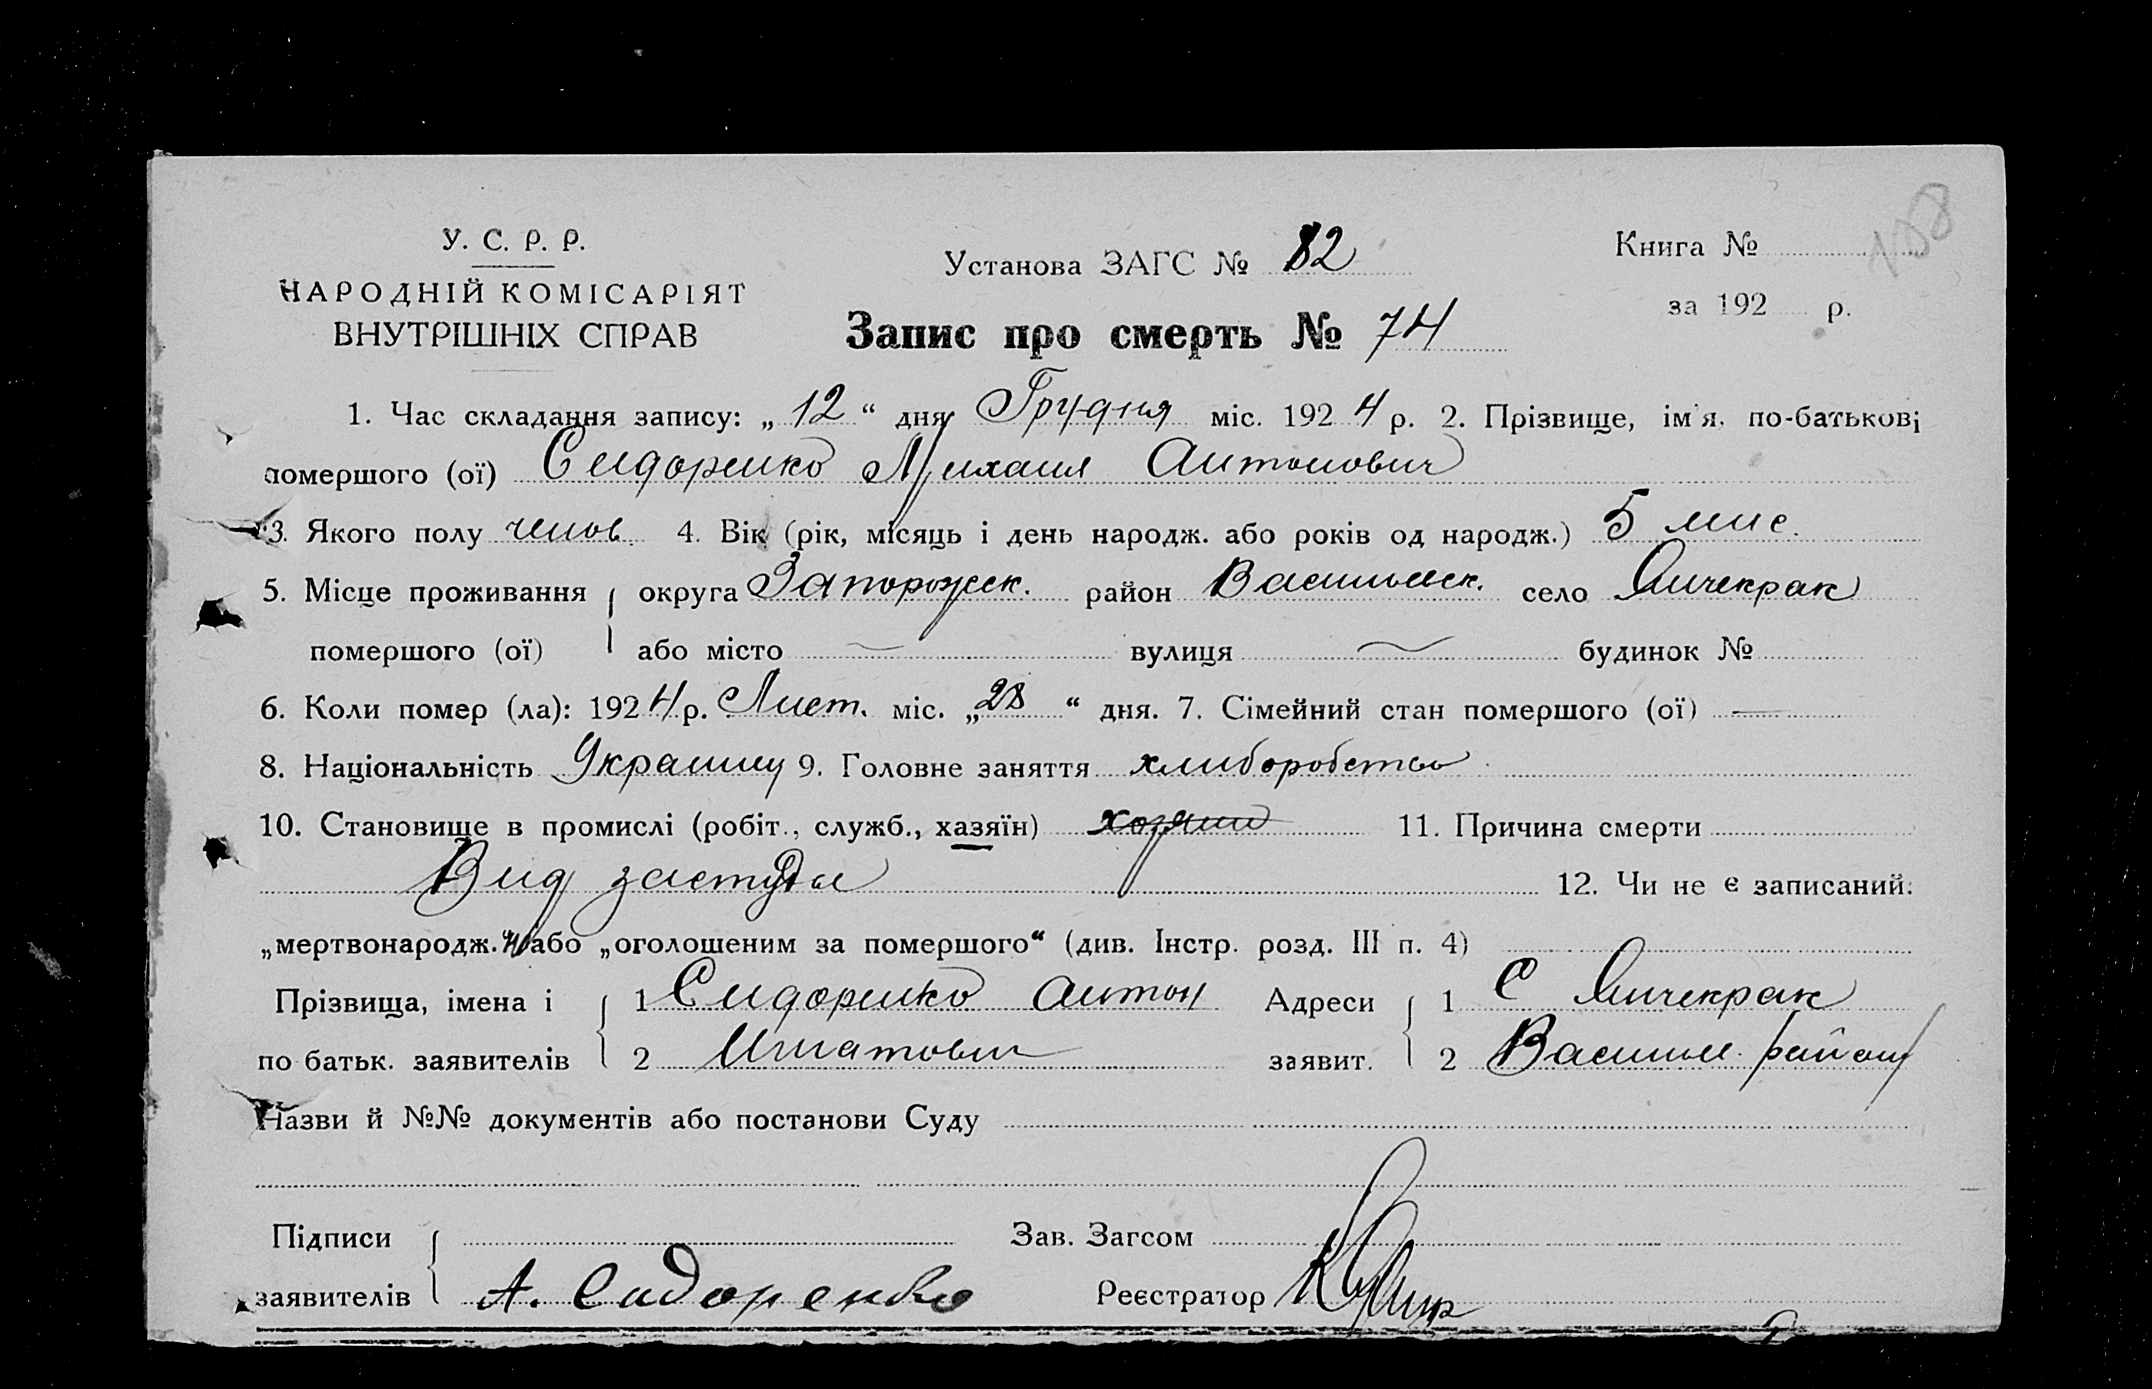 У. С. Р. Р.
НАРОДНІЙ КОМІСАРІЯТ
ВНУТРІШНІХ СПРАВ
Установа ЗАГС № 82
Книга №
158
за 192 р.
Запис про смерть № 74
1. Час складання запису: „12“ дня Грудня міс. 1924 р. 2. Прізвище, ім'я, по-батькові
помершого (ої) Сидоренко Михаил Антонович
3. Якого полу челов. 4. Вік (рік, місяць і день народж. або років од народж.) 5 мис.
5. Місце проживання округа Запорожск. район Васильевск. село Янчекрак
помершого (ої) або місто вулиця будинок №
6. Коли помер (ла): 1924 р. Лист. міс. „28“ дня. 7. Сімейний стан помершого (ої) —
8. Національність Украинц 9. Головне заняття хлиборобство
10. Становище в промислі (робіт., служб., хазяїн) хозяин 11. Причина смерти
Вид застуды 12. Чи не є записаний:
„мертвонародж.“ або „оголошеним за помершого“ (див. Інстр. розд. III п. 4)
Прізвища, імена і 1 Сидоренко Антон Адреси 1 С Янчекрак
по батьк. заявителів 2 Игнатович заявит. 2 Васильев. району
Назви й №№ документів або постанови Суду
Підписи Зав. Загсом
заявителів А. Сидоренко Реєстратор